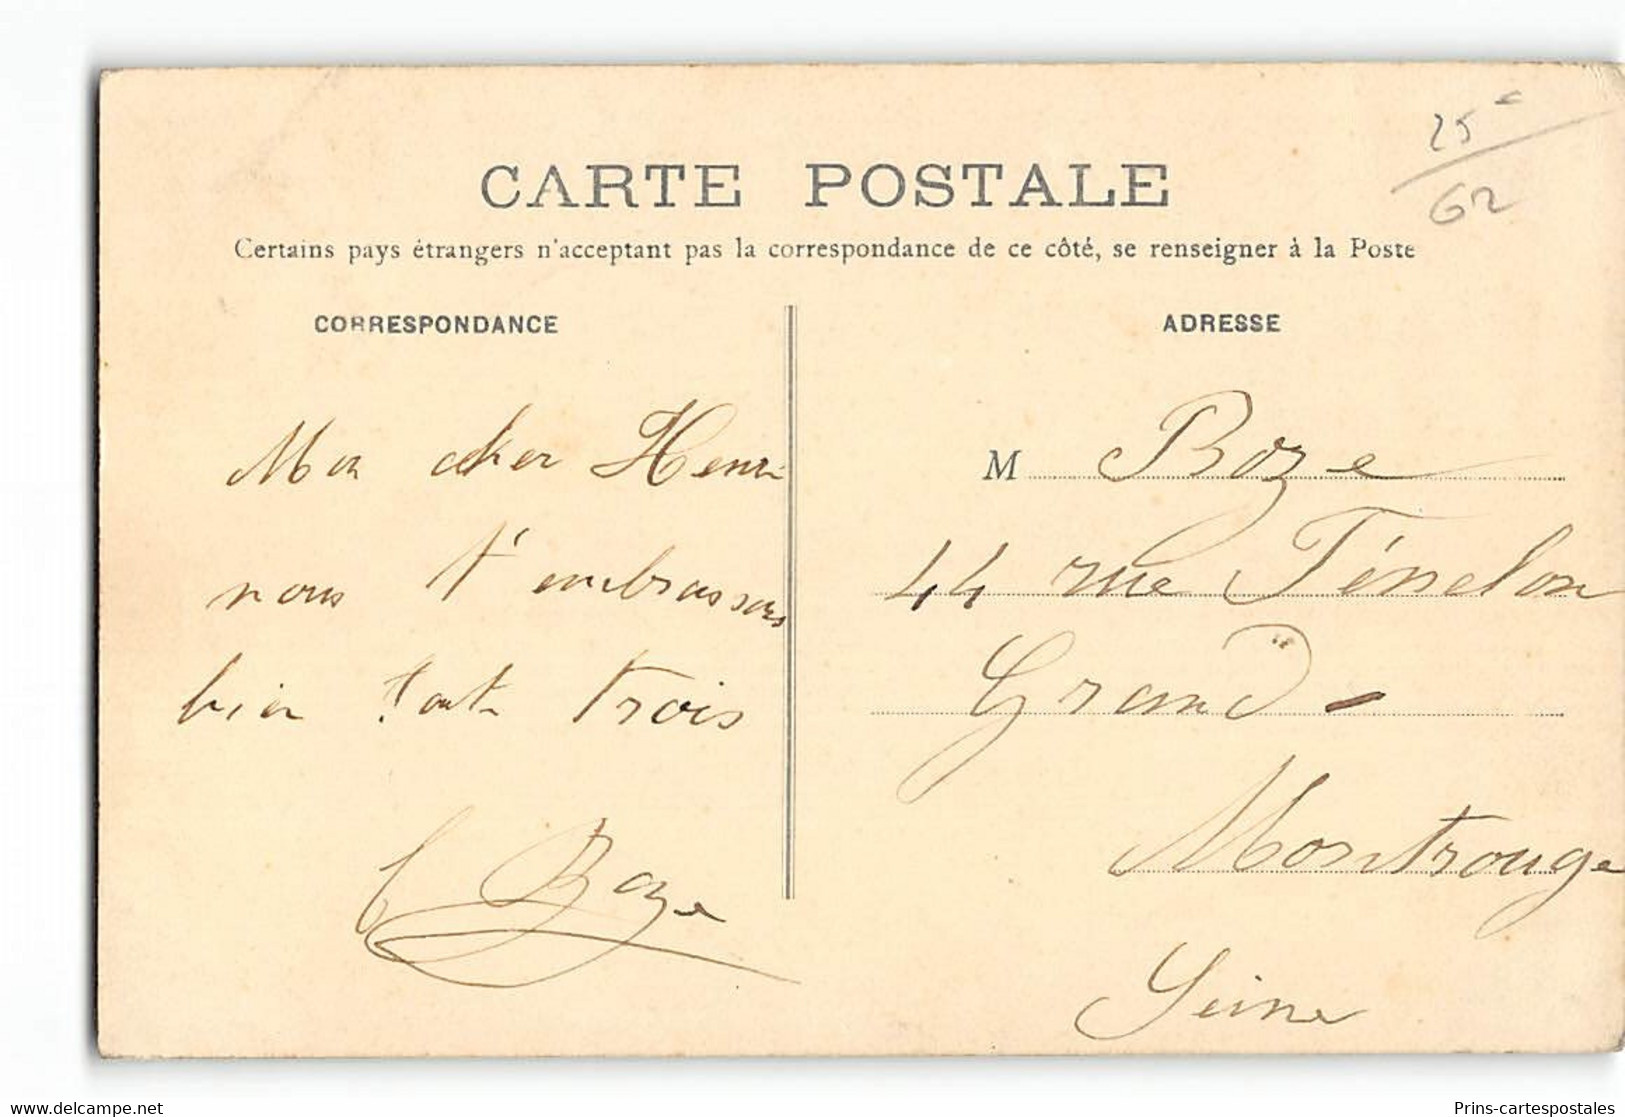 25 €
62
CARTE POSTALE
Certains pays étrangers n'acceptant pas la correspondance de ce côté, se renseigner à la Poste
CORRESPONDANCE
Mon cher Henri
nous t'embrassons
bien toute trois
Boze
ADRESSE
M Boze
44 rue Fénelon
Grand-
Montrouge
Seine
www.delcampe.net
Prins-cartespostales